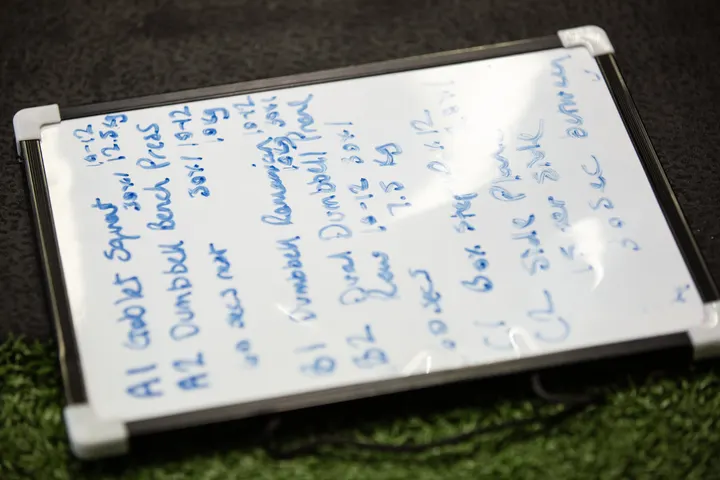 A1 Goblet Squat 10-12
30x1 12.5kg
A2 Dumbbell Bench Press
30x1 10-12
10kg
60 secs rest
B1 Dumbbell Romanian 10-12
30x1
B2 Dual Dumbbell Prone
Row 10-12 30x1
7.5 kg
60 secs
C1 Box step
C2 Side Plank
per side
30 sec between